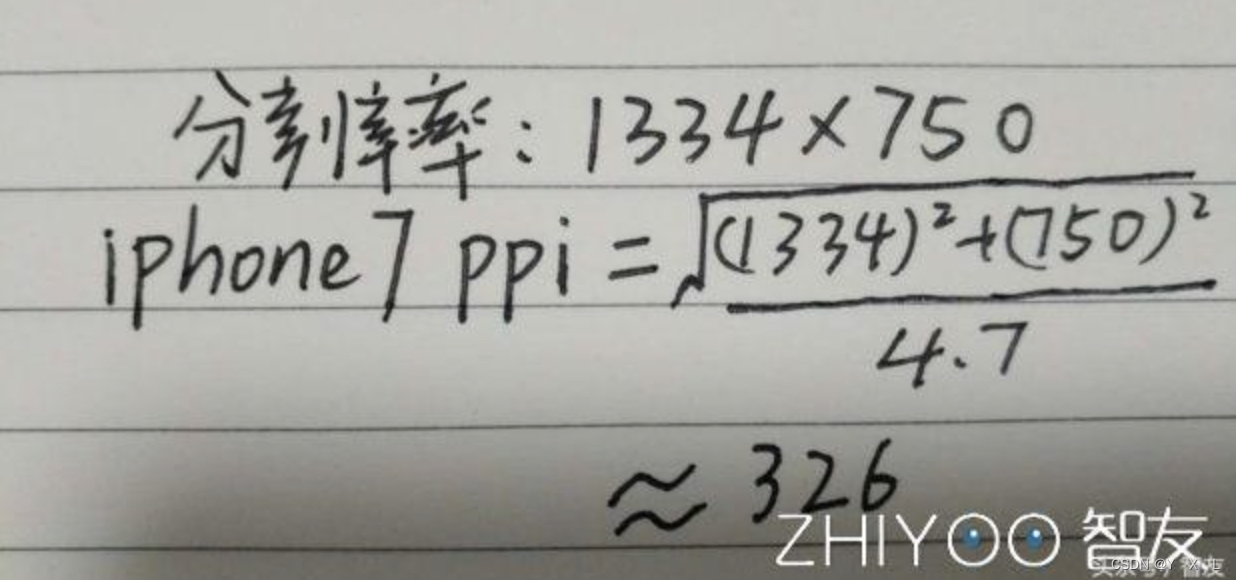 分剖悻率：1334×750
iphone7 ppi = √((1334)²+(750)²) / 4.7
≈ 326
ZHIYOO 智友